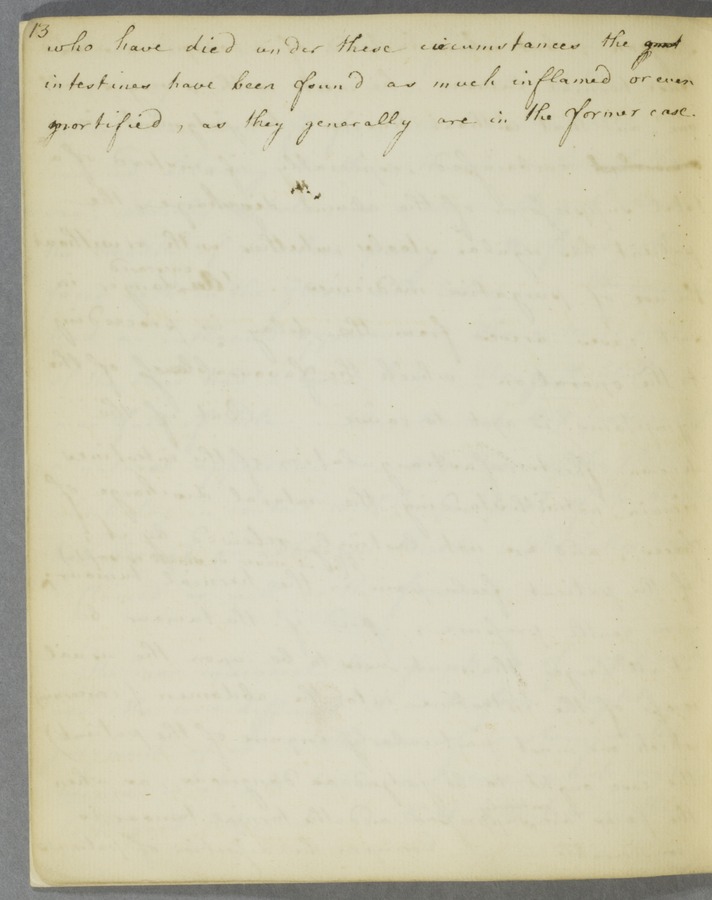 13
who have died under these circumstances the
intestines have been found as much inflamed or even
mortified, as they generally are in the former case.